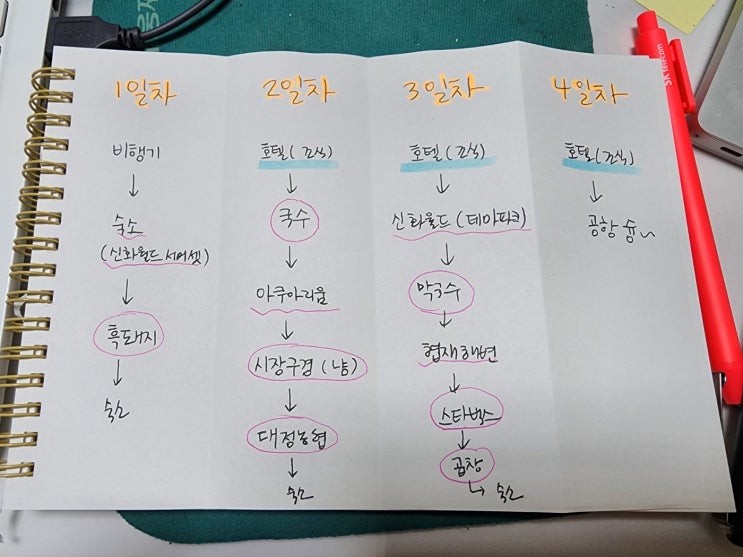 1일차
비행기
↓
숙소
(신화월드 서머셋)
↓
흑돼지
↓
숙소
2일차
호텔(조식)
↓
국수
↓
아쿠아리움
↓
시장구경 (냠)
↓
대정농협
↓
숙소
3일차
호텔(조식)
↓
신화월드 (테마파크)
↓
막국수
↓
협재해변
↓
스타벅스
↓
곱창
↳ 숙소
4일차
호텔(조식)
↓
공항 슝~
SK telecom